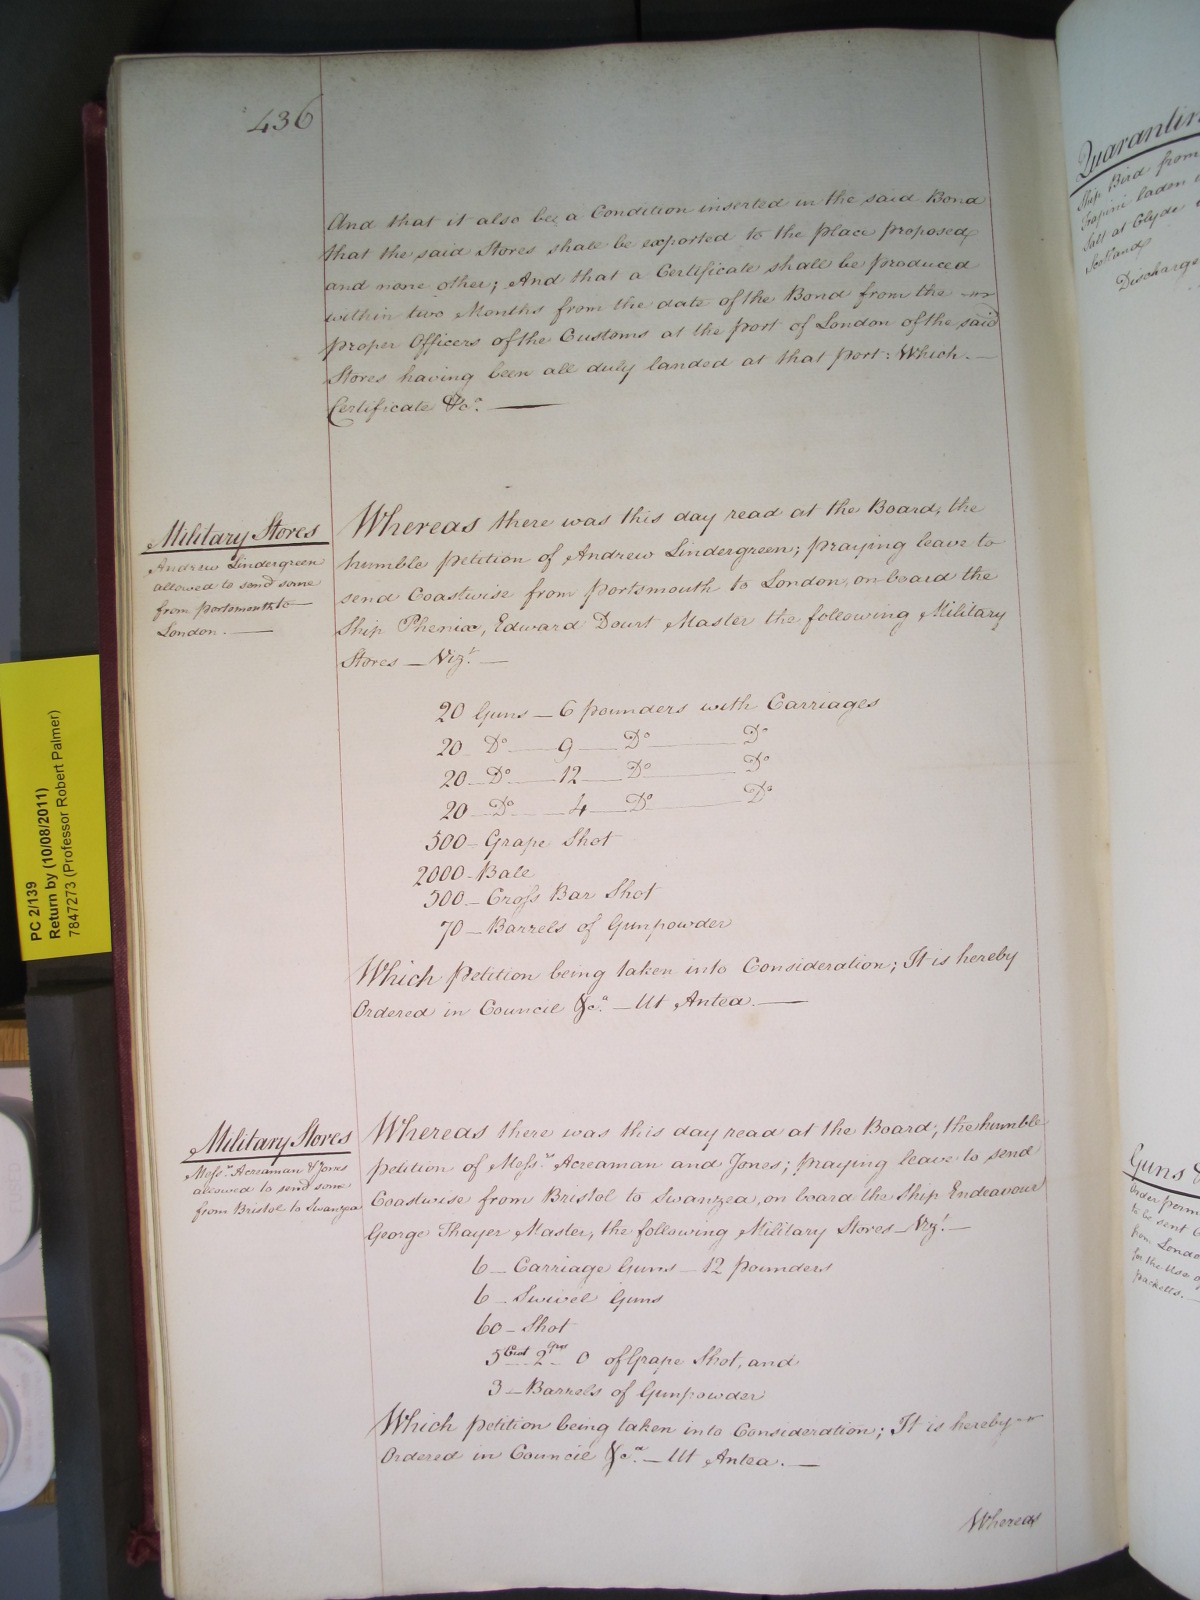 436
And that it also bee a Condition inserted in the said Bond
that the said Stores shall be exported to the Place proposed,
and none other; And that a Certificate shall be produced
within two Months from the date of the Bond from the
proper Officers of the Customs at the port of London of the said
Stores having been all duly landed at that port: Which.—
Certificate &c.ª —
Military Stores
Andrew Lindergreen
allowed to send some
from portsmouth to—
London. —
Whereas there was this day read at the Board, the
humble petition of Andrew Lindergreen; praying leave to
send Coastwise from portsmouth to London, on board the
Ship Phenix, Edward Dourt Master the following Military
Stores — Vizt. —
20 Guns — 6 pounders with Carriages
20 Dº — 9 — Dº — Dº
20 — Dº — 12 — Dº — Dº
20 — Dº — 4 — Dº — Dº
500 — Grape Shot
2000 — Ball
500 — Cross Bar Shot
70 — Barrels of Gunpowder
Which petition being taken into Consideration; It is hereby
Ordered in Council &c.ª — Ut Antea. —
Military Stores
Mess.rs Acreaman & Jones
allowed to send some
from Bristol to Swanzea
Whereas there was this day read at the Board, the humble
petition of Mess.rs Acreaman and Jones; praying leave to send
Coastwise from Bristol to Swanzea, on board the Ship Endeavour
George Thayer Master, the following Military Stores — Vizt. —
6 — Carriage Guns — 12 pounders
6 — Swivel Guns
60 — Shot
5 Cwt 2 Qrs 0 of Grape Shot, and
3 — Barrels of Gunpowder
Which petition being taken into Consideration; It is hereby
Ordered in Council &c.ª — Ut Antea. —
Whereas
PC 2/139
Return by (10/08/2011)
7847273 (Professor Robert Palmer)
Quarantin
Ship Bird from
Trapini laden
Salt at Clyde
Scotland
Discharge
Guns &
Order perm
to be sent
from London
for the Use of
packetts. —